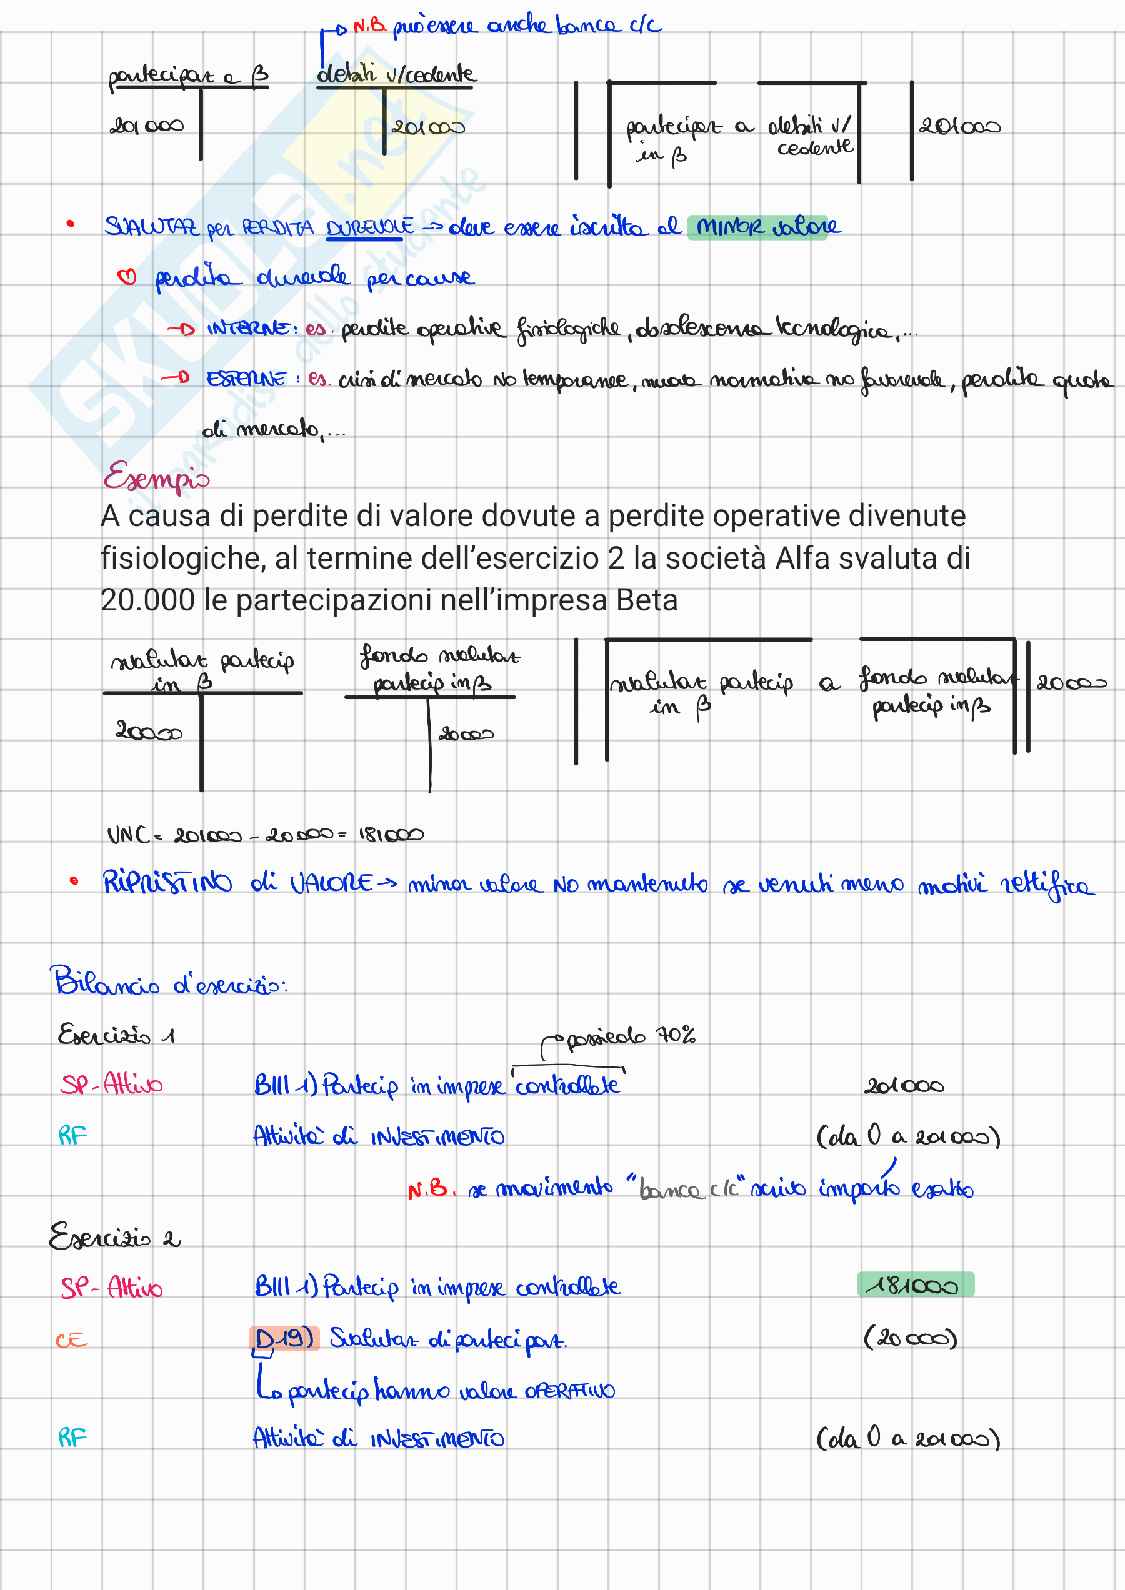 N.B. può essere anche banca c/c
partecipaz a β debiti v/cedente
201000 201000 partecipaz a debiti v/ 201000
in β cedente
SKUOLA.net
il paradiso dello studente
• SVALUTAZ per PERDITA DUREVOLE → deve essere iscritta al MINOR valore
perdita durevole per cause
→ INTERNE: es. perdite operative fisiologiche, obsolescenza tecnologica,...
→ ESTERNE: es. crisi di mercato NO temporanee, nuova normativa no favorevole, perdita quota
di mercato,...
Esempio
A causa di perdite di valore dovute a perdite operative divenute
fisiologiche, al termine dell'esercizio 2 la società Alfa svaluta di
20.000 le partecipazioni nell'impresa Beta
svalutaz partecip fondo svalutaz
in β partecip in β svalutaz partecip a fondo svalutaz 20000
in β partecip in β
20000 20000
VNC = 201000 - 20000 = 181000
• RIPRISTINO di VALORE → minor valore NO mantenuto se venuti meno motivi rettifica
Bilancio d'esercizio:
Esercizio 1 possiedo 70%
SP-Attivo BIII 1) Partecip in imprese controllate 201000
RF Attività di INVESTIMENTO (da 0 a 201000)
N.B. se movimento "banca c/c" scrivo importo esatto
Esercizio 2
SP-Attivo BIII 1) Partecip in imprese controllate 181000
CE D.19) Svalutaz di partecipaz. (20000)
partecip hanno valore OPERATIVO
RF Attività di INVESTIMENTO (da 0 a 201000)